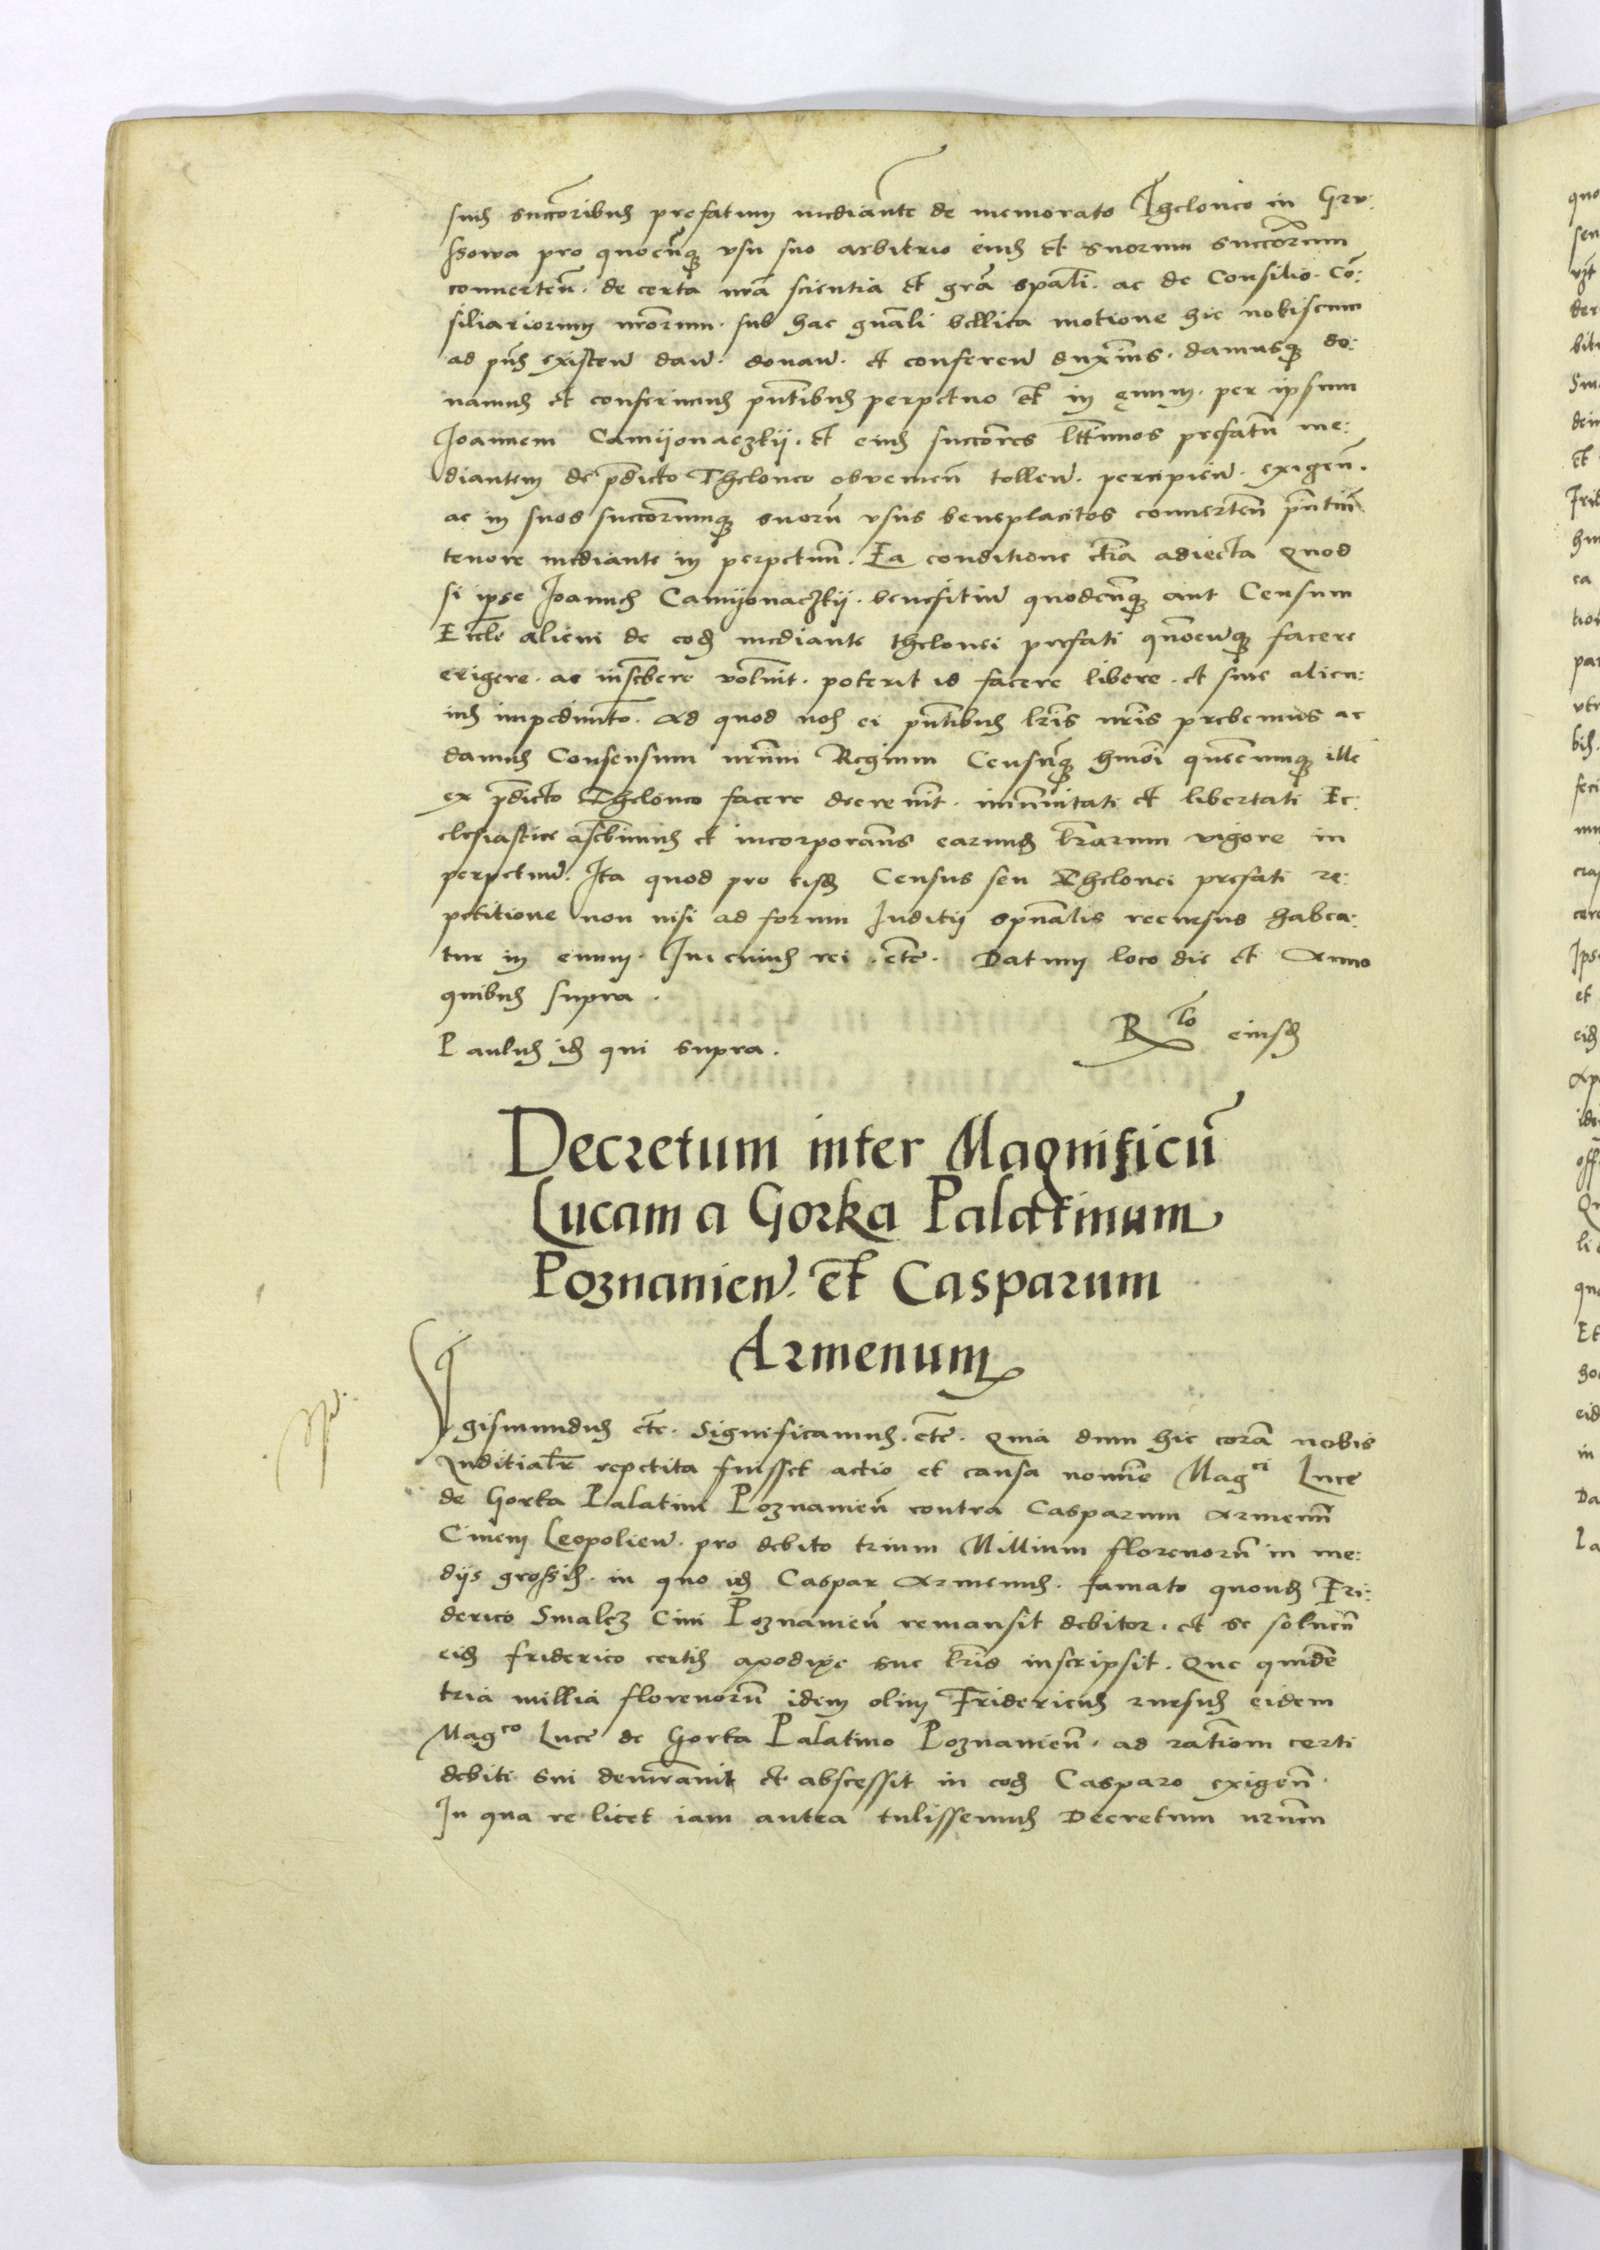 suis succoribus prefatum mediante de memorato Theloneo in Gru:
ssowa pro quocunq usu suo arbitrio eius et suorum succorum
converten. de certa nra scientia et gra spali. ac de Consilio. Co:
siliariorum nrorum. sub hac gnali bellica motione hic nobiscum
ad pns existen dan. donan. et conferen duximus. damusq do:
namus et conferimus pntibus perpetuo et in evum. per ipsum
Joannem Camyonaczkij. et eius succores lttimos prefatu me:
diantem de pdicto Theloneo obvenien tollen. percipien. exigen.
ac in suos succorumq suoru usus beneplacitos converten pntiu
tenore mediante in perpetuu. Ea conditione etia adiecta Quod
si ipse Joannes Camyonaczkij. benefitiu quodcunq aut Censum
Eccle alicui de eod mediante thelonei prefati quocunq facere
erigere. ac inscbere voluit. poterit id facere libere. et sine alicu:
ius impedimto. Ad quod nos ei pntibus lris nris prebemus ac
damus Consensum nrum Regium Censuq hmoi quecumq ille
ex pdicto Theloneo facere decrevit. imunitati et libertati Ec:
clesiastice ascbimus et incorporamus earund lrarum vigore in
perpetuu. Ita quod pro eisd Census seu Thelonei prefati re:
petitione non nisi ad forum Juditij spualis recursus habea:
tur in evum. In cuius rei. etc. Datum loco die et Anno
quibus supra.
Paulus id qui supra. Rlo eiusd
Decretum inter Magnificu
Lucam a Gorka Palatinum
Poznanien. et Casparum
Armenum
Sygismundus etc. Significamus. etc. Quia dum hic cora nobis
Juditialr repetita fuisset actio et causa nomine Magci Luce
de Gorka Palatini Poznanien contra Casparum Armenu
Civem Leopolien. pro debito trium Millium florenoru in me:
dijs grossis. in quo id Caspar Armenus. famato quond Fri:
derico Smalcz Civi Poznanien remansit debitor. et se soluen
eid friderico certis apodixe sue lris inscripsit. Que quide
tria millia florenoru idem olim Fridericus rursus eidem
Magco Luce de Gorka Palatino Poznanien. ad ratiom certi
debiti sui demravit et abscessit in eod Casparo exigen.
In qua re licet iam antea tulissemus Decretum nrum